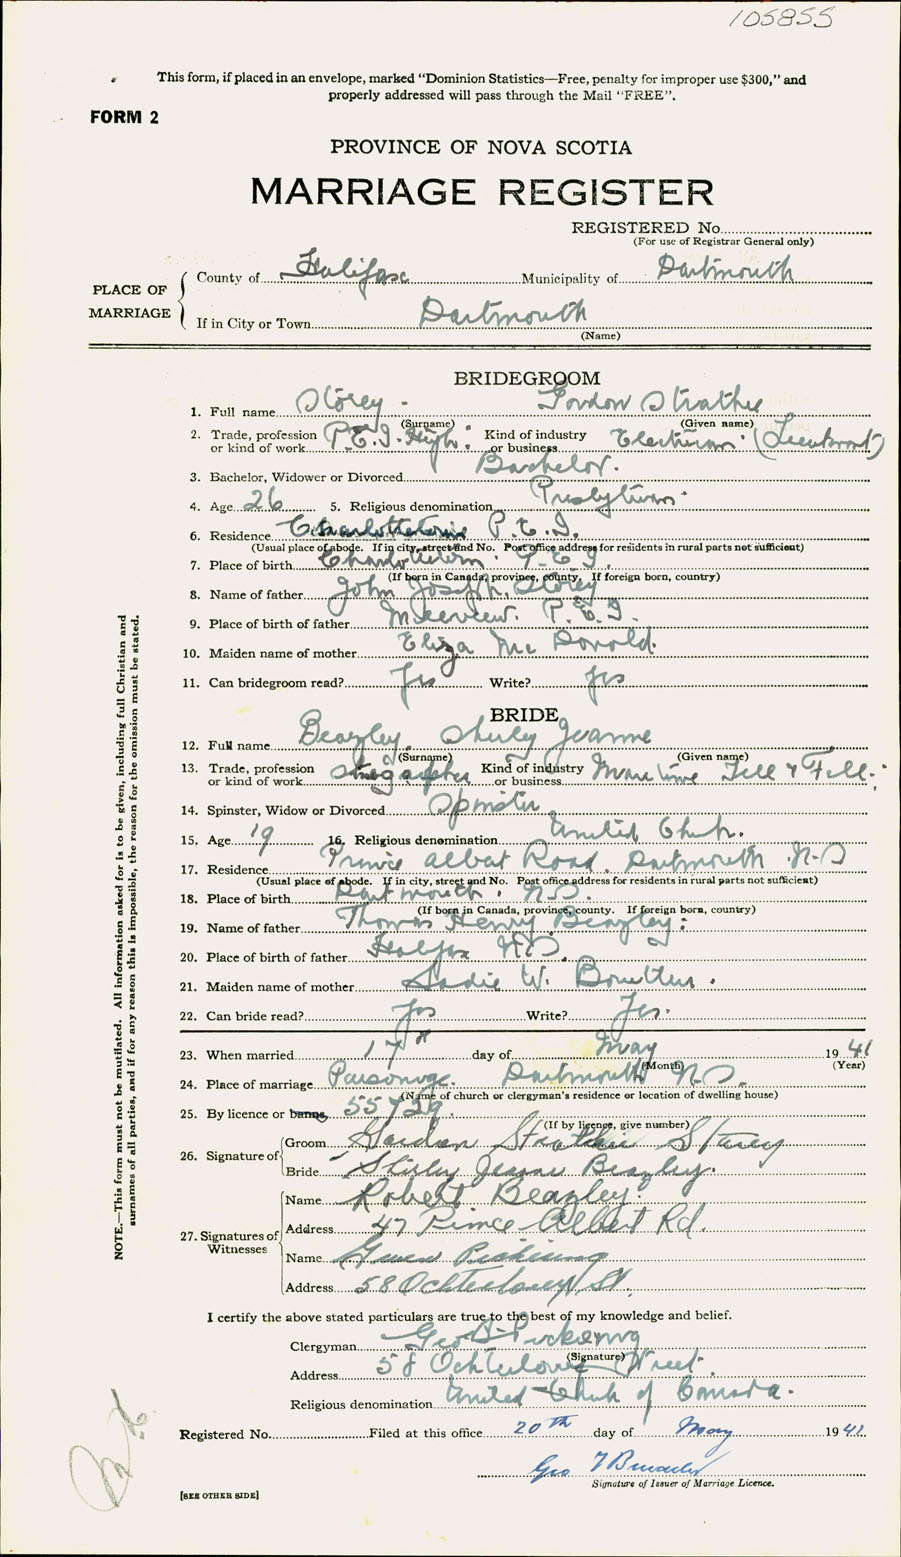 105855
This form, if placed in an envelope, marked “Dominion Statistics—Free, penalty for improper use $300,” and
properly addressed will pass through the Mail “FREE”.
FORM 2
PROVINCE OF NOVA SCOTIA
MARRIAGE REGISTER
REGISTERED No.
(For use of Registrar General only)
PLACE OF MARRIAGE
County of Halifax Municipality of Dartmouth
If in City or Town Dartmouth
(Name)
BRIDEGROOM
1. Full name Storey - Gordon Strathie
(Surname) (Given name)
2. Trade, profession or kind of work P.E.I. High: Kind of industry or business (Lieutenant)
3. Bachelor, Widower or Divorced Bachelor.
4. Age 26 5. Religious denomination Presbyterian.
6. Residence Charlottetown P.E.I.
(Usual place of abode. If in city, street and No. Post office address for residents in rural parts not sufficient)
7. Place of birth Charlottetown. P.E.I.
(If born in Canada, province, county. If foreign born, country)
8. Name of father John Joseph Storey
9. Place of birth of father P.E.I.
10. Maiden name of mother Eliza Mc Donald.
11. Can bridegroom read? Yes Write? Yes
BRIDE
12. Full name Beazley. Shirley Jeanne
(Surname) (Given name)
13. Trade, profession or kind of work Stenographer Kind of industry or business Maritime Tell & Tell.
14. Spinster, Widow or Divorced Spinster
15. Age 19 16. Religious denomination United Church.
17. Residence Prince Albert Road. Dartmouth N.S
(Usual place of abode. If in city, street and No. Post office address for residents in rural parts not sufficient)
18. Place of birth Dartmouth. N.S.
(If born in Canada, province, county. If foreign born, country)
19. Name of father Thomas Henry Beazley.
20. Place of birth of father Halifax N.S.
21. Maiden name of mother Sadie W.
22. Can bride read? Yes Write? Yes.
23. When married 17th day of May 1941
(Month) (Year)
24. Place of marriage Parsonage. Dartmouth N.S.
(Name of church or clergyman's residence or location of dwelling house)
25. By licence or banns 55729.
(If by licence, give number)
26. Signature of
Groom Gordon Strathie Storey
Bride Shirley Jeanne Beazley.
27. Signatures of Witnesses
Name Robert Beazley.
Address 47 Prince Albert Rd.
Name Gwen Pickering
Address 58 Ochterloney St.
I certify the above stated particulars are true to the best of my knowledge and belief.
Clergyman Geo A. Pickering
(Signature)
Address 58 Ochterloney Street.
Religious denomination United Church of Canada.
Registered No. Filed at this office 20th day of May 1941
Geo
Signature of Issuer of Marriage Licence.
[SEE OTHER SIDE]
NOTE.—This form must not be mutilated. All information asked for is to be given, including full Christian and
surnames of all parties, and if for any reason this is impossible, the reason for the omission must be stated.